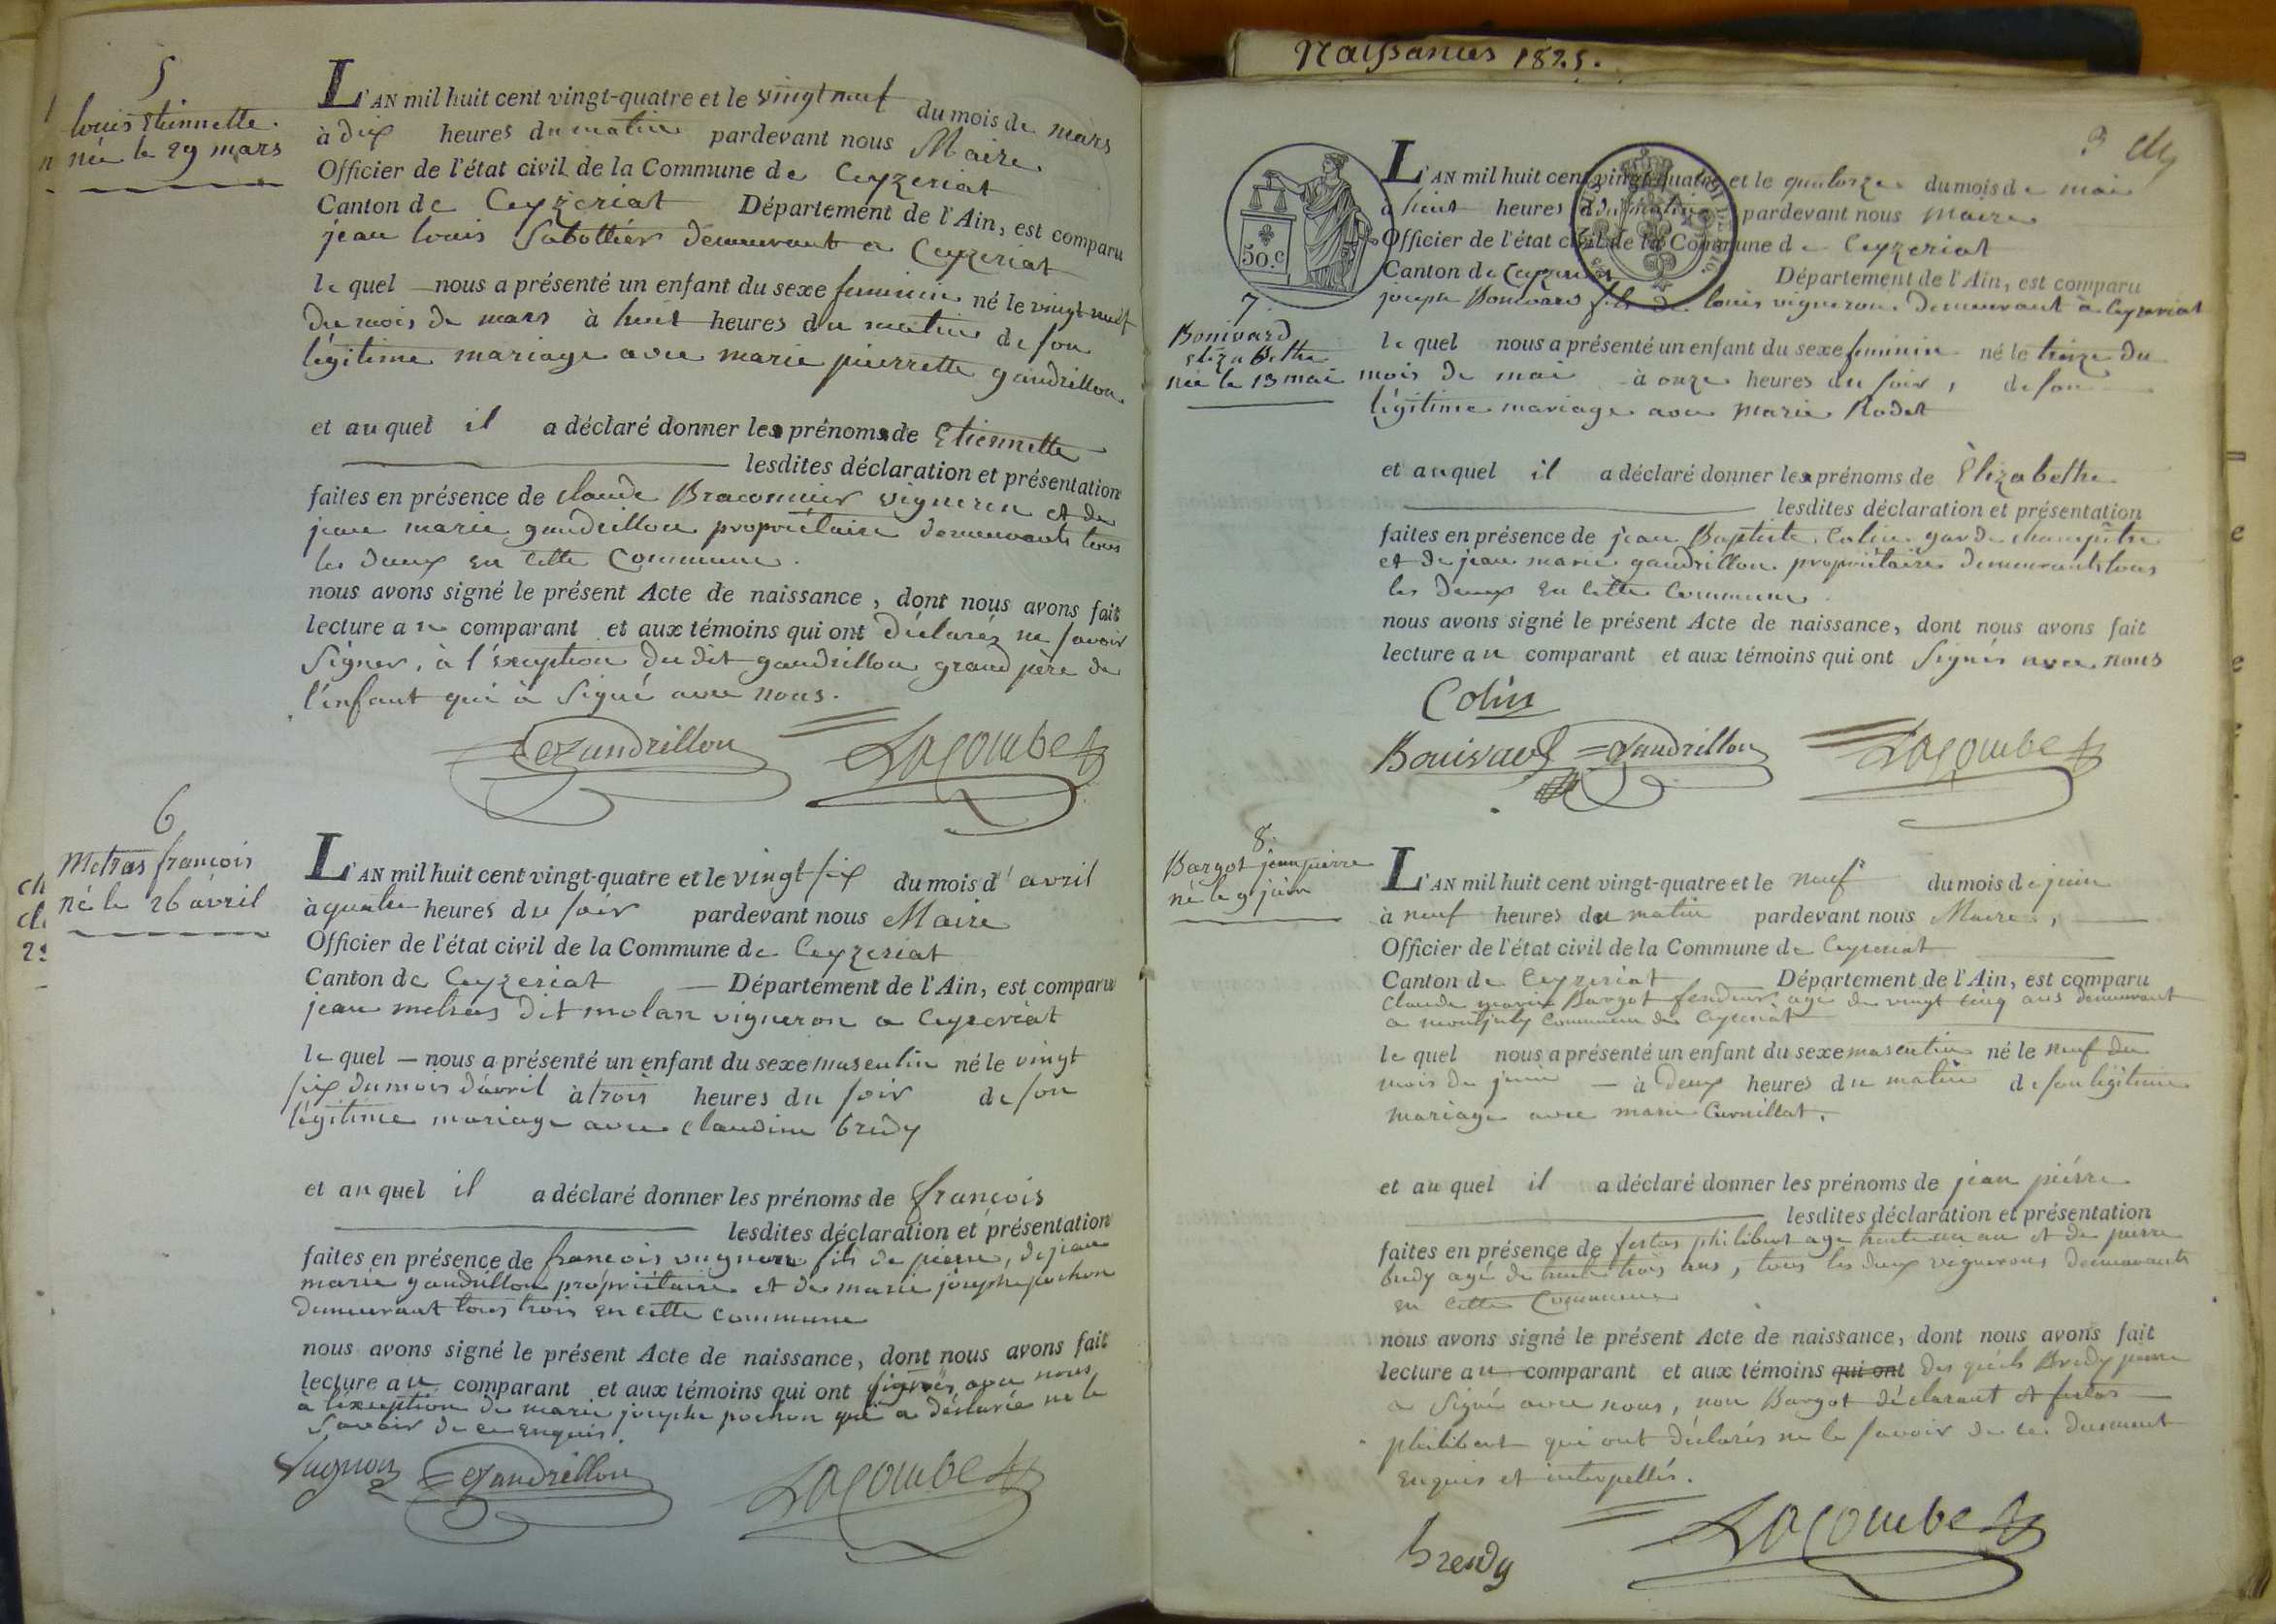 5
louis Etiennette.
née le 29 mars
L'AN mil huit cent vingt-quatre et le vingt neuf du mois de mars
à dix heures du matin pardevant nous Maire
Officier de l'état civil de la Commune de Ceyzeriat
Canton de Ceyzeriat Département de l'Ain, est comparu
jean louis Sabottier demeurant a Ceyzeriat
le quel nous a présenté un enfant du sexe feminin né le vingt neuf
du mois de mars à huit heures du matin de son
légitime mariage avec marie pierrette gaudrillon
et auquel il a déclaré donner les prénoms de Etiennette
lesdites déclaration et présentation
faites en présence de claude Braconnier vigneron et de
jean marie gaudrillon propriétaire demeurants tous
les deux en cette Commune.
nous avons signé le présent Acte de naissance, dont nous avons fait
lecture au comparant et aux témoins qui ont déclarés ne savoir
signer, à l'éxception du dit gaudrillon grand père de
l'enfant qui à signé avec nous.
Gaudrillon Lacombe
6
Metras françois
né le 26 avril
L'AN mil huit cent vingt-quatre et le vingt six du mois d'avril
à quatre heures du soir pardevant nous Maire
Officier de l'état civil de la Commune de Ceyzeriat
Canton de Ceyzeriat Département de l'Ain, est comparu
jean metras dit molan vigneron a Ceyzeriat
le quel nous a présenté un enfant du sexe masculin né le vingt
six du mois d'avril à trois heures du soir de son
légitime mariage avec claudine bredy
et auquel il a déclaré donner les prénoms de françois
lesdites déclaration et présentation
faites en présence de francois vugnon fils de pierre, de jean
marie gaudrillon propriétaire et de marie josephe pochon
demeurant tous trois en cette commune
nous avons signé le présent Acte de naissance, dont nous avons fait
lecture au comparant et aux témoins qui ont signés avec nous
à l'éxception de marie josephe pochon qui a déclarée ne le
savoir de ce enquis.
Vugnon Gaudrillon Lacombe
Naissances 1825.
3
50.c
L'AN mil huit cent vingt-quatre et le quatorze du mois de mai
à huit heures du matin pardevant nous maire
Officier de l'état civil de la Commune de Ceyzeriat
Canton de Ceyzeriat Département de l'Ain, est comparu
joseph Bonivard fils de louis vigneron demeurant à Ceyzeriat
7.
Bonivard
Elizabethe
née le 13 mai
le quel nous a présenté un enfant du sexe feminin né le treize du
mois de mai à onze heures du soir, de son
légitime mariage avec Marie Rodet
et auquel il a déclaré donner les prénoms de Elizabethe
lesdites déclaration et présentation
faites en présence de jean Baptiste Colin garde champêtre
et de jean marie gaudrillon propriétaire demeurants tous
les deux en cette Commune.
nous avons signé le présent Acte de naissance, dont nous avons fait
lecture au comparant et aux témoins qui ont signés avec nous
Colin
Bonivard Gaudrillon Lacombe
8.
Bargot jean pierre
né le 9 juin
L'AN mil huit cent vingt-quatre et le neuf du mois de juin
à neuf heures du matin pardevant nous Maire,
Officier de l'état civil de la Commune de Ceyzeriat
Canton de Ceyzeriat Département de l'Ain, est comparu
Claude marie Bargot fendeur agé de vingt cinq ans demeurant
a montjuly Commune de Ceyzeriat
le quel nous a présenté un enfant du sexe masculin né le neuf du
mois de juin à deux heures du matin de son légitime
mariage avec marie Curnillat.
et auquel il a déclaré donner les prénoms de jean pierre
lesdites déclaration et présentation
faites en présence de ferlas philibert age trente un an et de pierre
bredy agé de trente trois ans, tous les deux vignerons demeurants
en cette Commune
nous avons signé le présent Acte de naissance, dont nous avons fait
lecture au comparant et aux témoins qui ont des quels Bredy pierre
a signé avec nous, non Bargot déclarant et ferlas
philibert qui ont déclarés ne le savoir de ce dument
enquis et interpellés.
bredy Lacombe